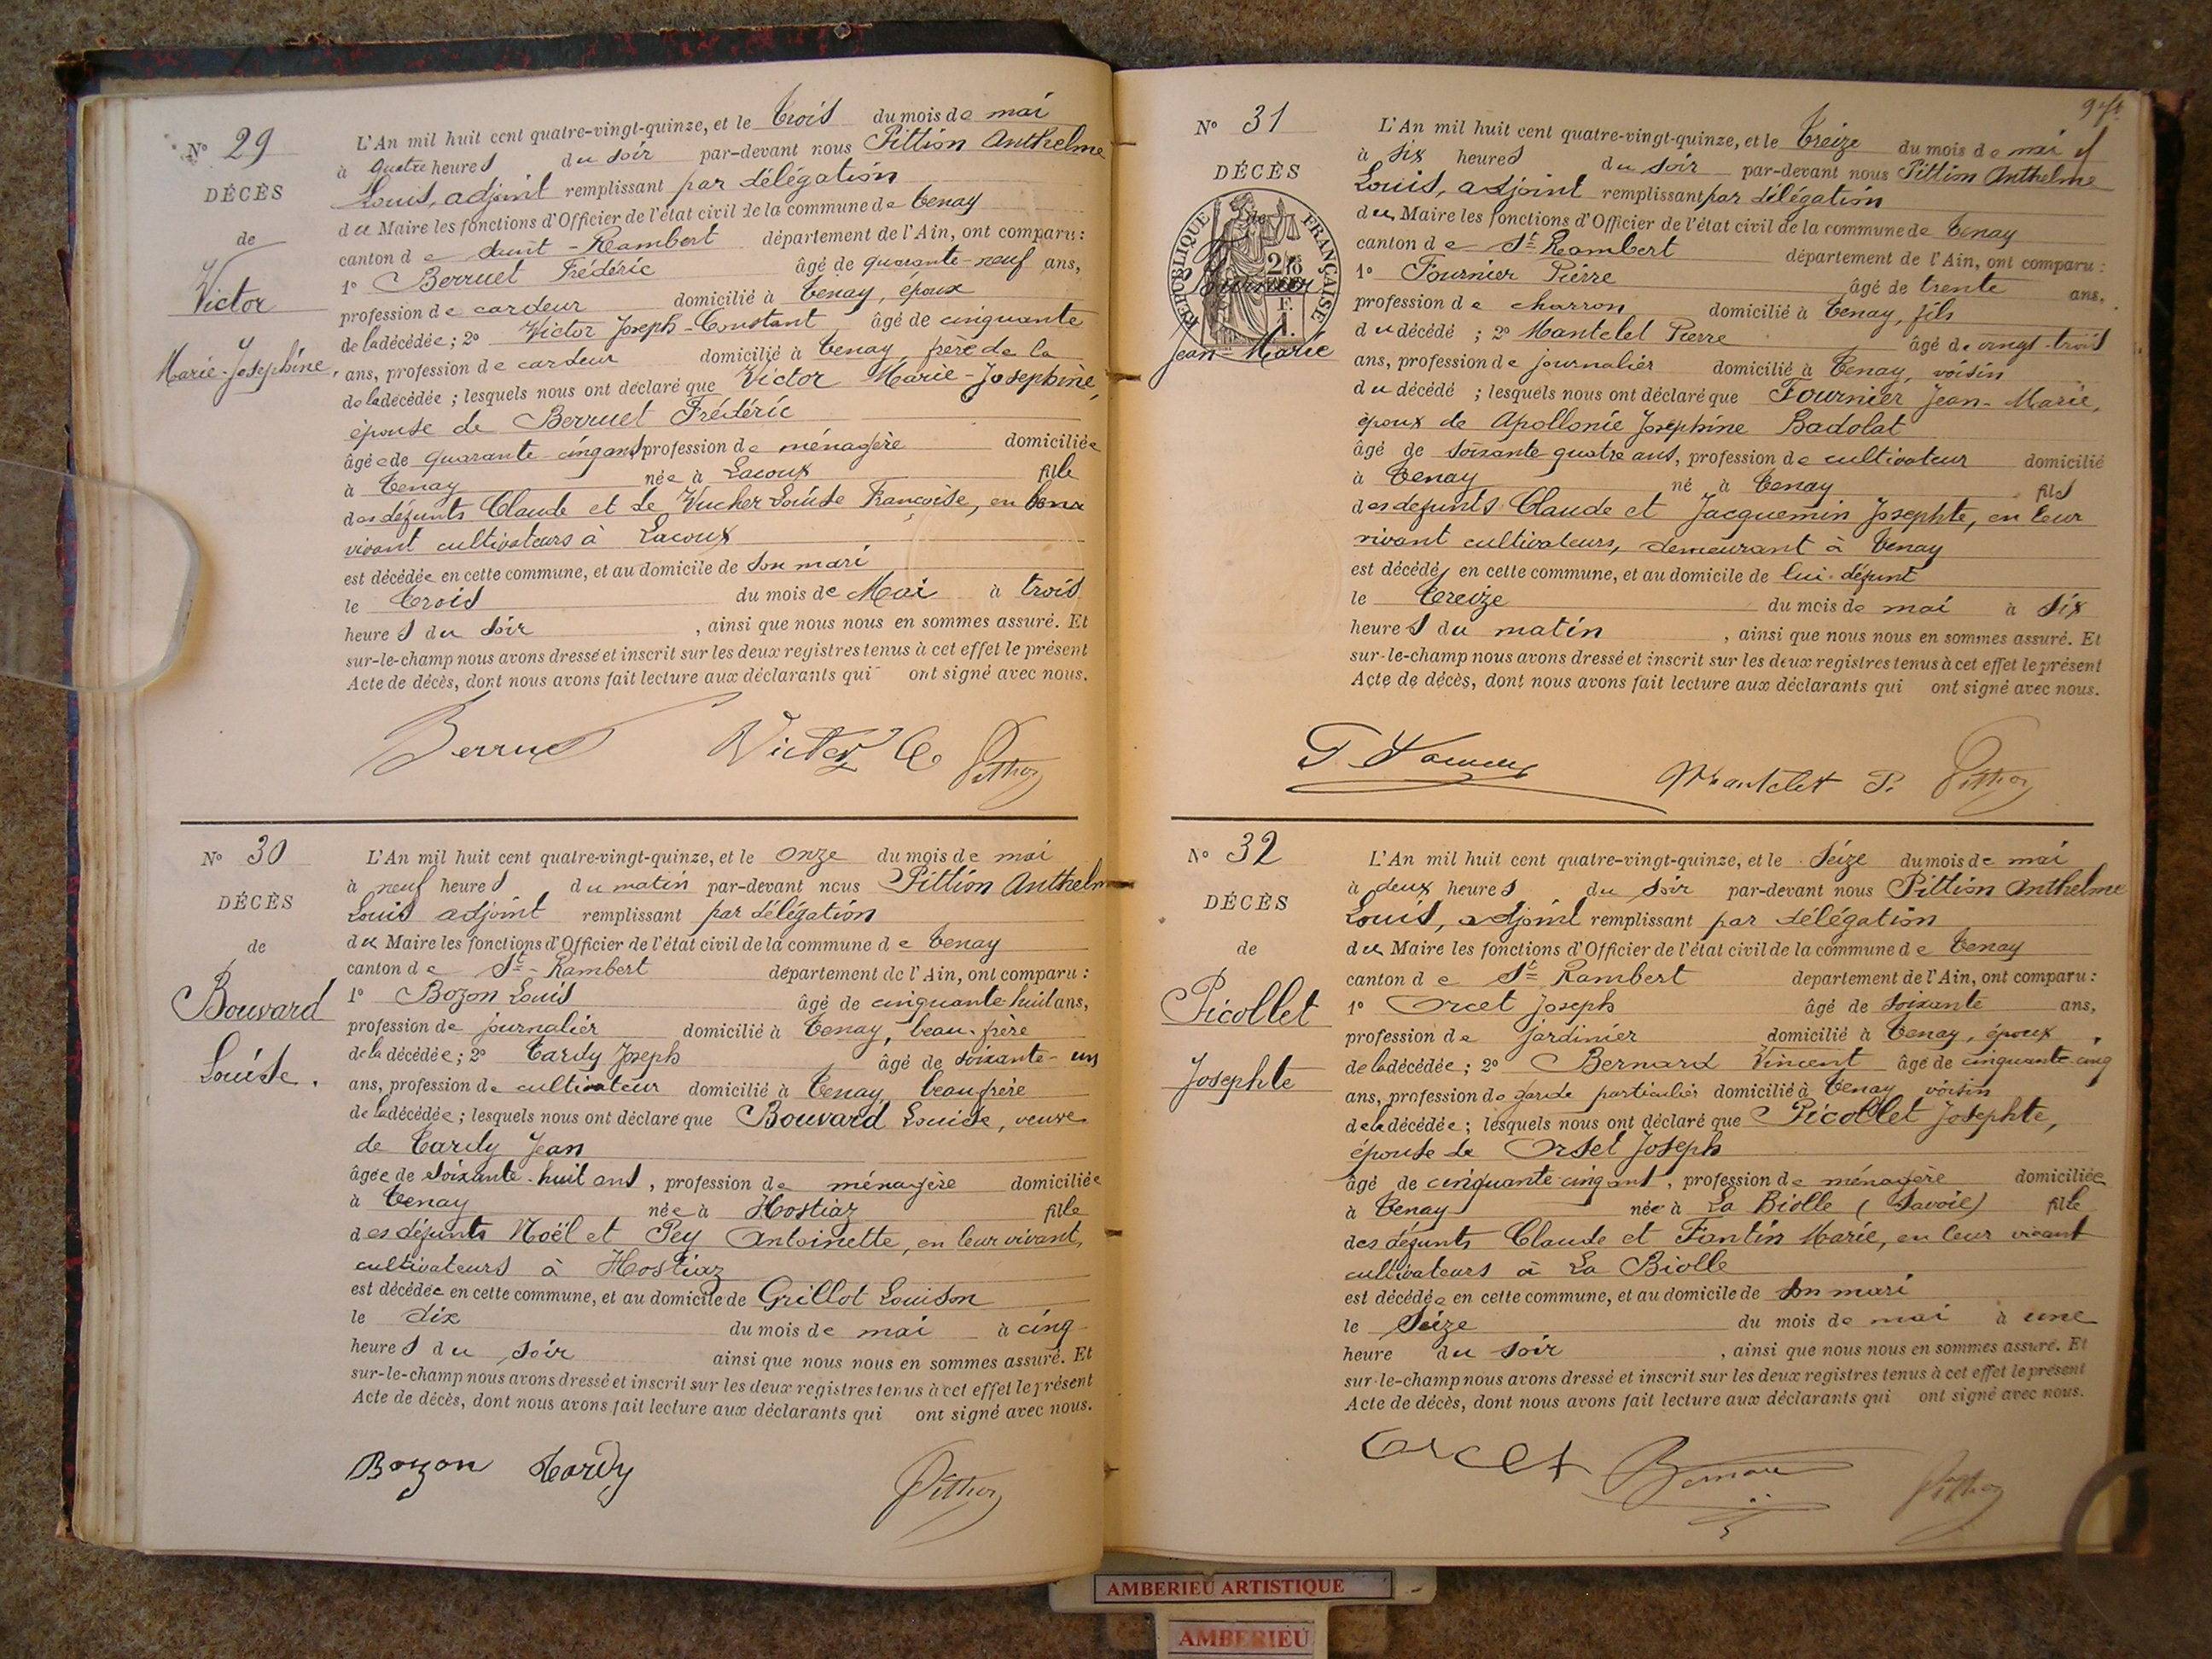 N° 29
DÉCÈS
de
Victor
Marie-Josephine,
L'An mil huit cent quatre-vingt-quinze, et le trois du mois de mai
à quatre heures du soir par-devant nous Pittion Anthelme
Louis, adjoint remplissant par délégation
du Maire les fonctions d'Officier de l'état civil de la commune de Tenay
canton de Saint-Rambert département de l'Ain, ont comparu:
1° Berruet Frédéric âgé de quarante-neuf ans,
profession de cardeur domicilié à Tenay, époux
de la décédée; 2° Victor Joseph-Constant âgé de cinquante
ans, profession de cardeur domicilié à Tenay, frère de la
de la décédée; lesquels nous ont déclaré que Victor Marie-Josephine,
épouse de Berruet Frédéric
âgée de quarante cinq ans profession de ménagère domiciliée
à Tenay née à Lacoux fille
des défunts Claude et de Vucher Louise Françoise, en
vivant cultivateurs à Lacoux
est décédée en cette commune, et au domicile de son mari
le trois du mois de Mai à trois
heures du soir, ainsi que nous nous en sommes assuré. Et
sur-le-champ nous avons dressé et inscrit sur les deux registres tenus à cet effet le présent
Acte de décès, dont nous avons fait lecture aux déclarants qui ont signé avec nous.
Berruet Victor C Pittion
N° 30
DÉCÈS
de
Bouvard
Louise.
L'An mil huit cent quatre-vingt-quinze, et le onze du mois de mai
à neuf heures du matin par-devant nous Pittion Anthelme
Louis adjoint remplissant par délégation
du Maire les fonctions d'Officier de l'état civil de la commune de Tenay
canton de St-Rambert département de l'Ain, ont comparu:
1° Bozon Louis âgé de cinquante-huit ans,
profession de journalier domicilié à Tenay, beau-frère
de la décédée; 2° Tardy Joseph âgé de soixante-un
ans, profession de cultivateur domicilié à Tenay, beau frère
de la décédée; lesquels nous ont déclaré que Bouvard Louise, veuve
de Tardy Jean
âgée de soixante-huit ans, profession de ménagère domiciliée
à Tenay née à Hostiaz fille
des défunts Noël et Pey Antoinette, en leur vivant,
cultivateurs à Hostiaz
est décédée en cette commune, et au domicile de Grillot Louison
le dix du mois de mai à cinq
heures du soir ainsi que nous nous en sommes assuré. Et
sur-le-champ nous avons dressé et inscrit sur les deux registres tenus à cet effet le présent
Acte de décès, dont nous avons fait lecture aux déclarants qui ont signé avec nous.
Bozon Tardy Pittion
N° 31
DÉCÈS
de
RÉPUBLIQUE FRANÇAISE
Fournier
Jean-Marie
L'An mil huit cent quatre-vingt-quinze, et le treize du mois de mai
à six heures du soir par-devant nous Pittion Anthelme
Louis, adjoint remplissant par délégation
du Maire les fonctions d'Officier de l'état civil de la commune de Tenay
canton de St Rambert département de l'Ain, ont comparu:
1° Fournier Pierre âgé de trente ans,
profession de charron domicilié à Tenay, fils
du décédé; 2° Mantelet Pierre âgé de vingt-trois
ans, profession de journalier domicilié à Tenay, voisin
du décédé; lesquels nous ont déclaré que Fournier Jean-Marie,
époux de Apollonie Joséphine Badolat
âgé de soixante quatre ans, profession de cultivateur domicilié
à Tenay né à Tenay fils
des defunts Claude et Jacquemin Josephte, en leur
vivant cultivateurs, demeurant à Tenay
est décédé en cette commune, et au domicile de lui-défunt
le treize du mois de mai à six
heures du matin, ainsi que nous nous en sommes assuré. Et
sur-le-champ nous avons dressé et inscrit sur les deux registres tenus à cet effet le présent
Acte de décès, dont nous avons fait lecture aux déclarants qui ont signé avec nous.
Mantelet P. Pittion
N° 32
DÉCÈS
de
Picollet
Josephte
L'An mil huit cent quatre-vingt-quinze, et le seize du mois de mai
à deux heures du soir par-devant nous Pittion Anthelme
Louis, adjoint remplissant par délégation
du Maire les fonctions d'Officier de l'état civil de la commune de Tenay
canton de St Rambert departement de l'Ain, ont comparu:
1° Orcet Joseph âgé de soixante ans,
profession de jardinier domicilié à Tenay, époux
de la décédée; 2° Bernard Vincent âgé de cinquante-cinq
ans, profession de garde particulier domicilié à Tenay voisin
de la décédée; lesquels nous ont déclaré que Picollet Josephte,
épouse de Orsel Joseph
âgé de cinquante cinq ans, profession de ménagère domiciliée
à Tenay née à La Biolle (Savoie) fille
des défunts Claude et Fontin Marie, en leur vivant
cultivateurs à La Biolle
est décédée en cette commune, et au domicile de son mari
le seize du mois de mai à une
heure du soir, ainsi que nous nous en sommes assuré. Et
sur-le-champ nous avons dressé et inscrit sur les deux registres tenus à cet effet le présent
Acte de décès, dont nous avons fait lecture aux déclarants qui ont signé avec nous.
Orcet Bernard Pittion
AMBERIEU ARTISTIQUE
AMBERIEU